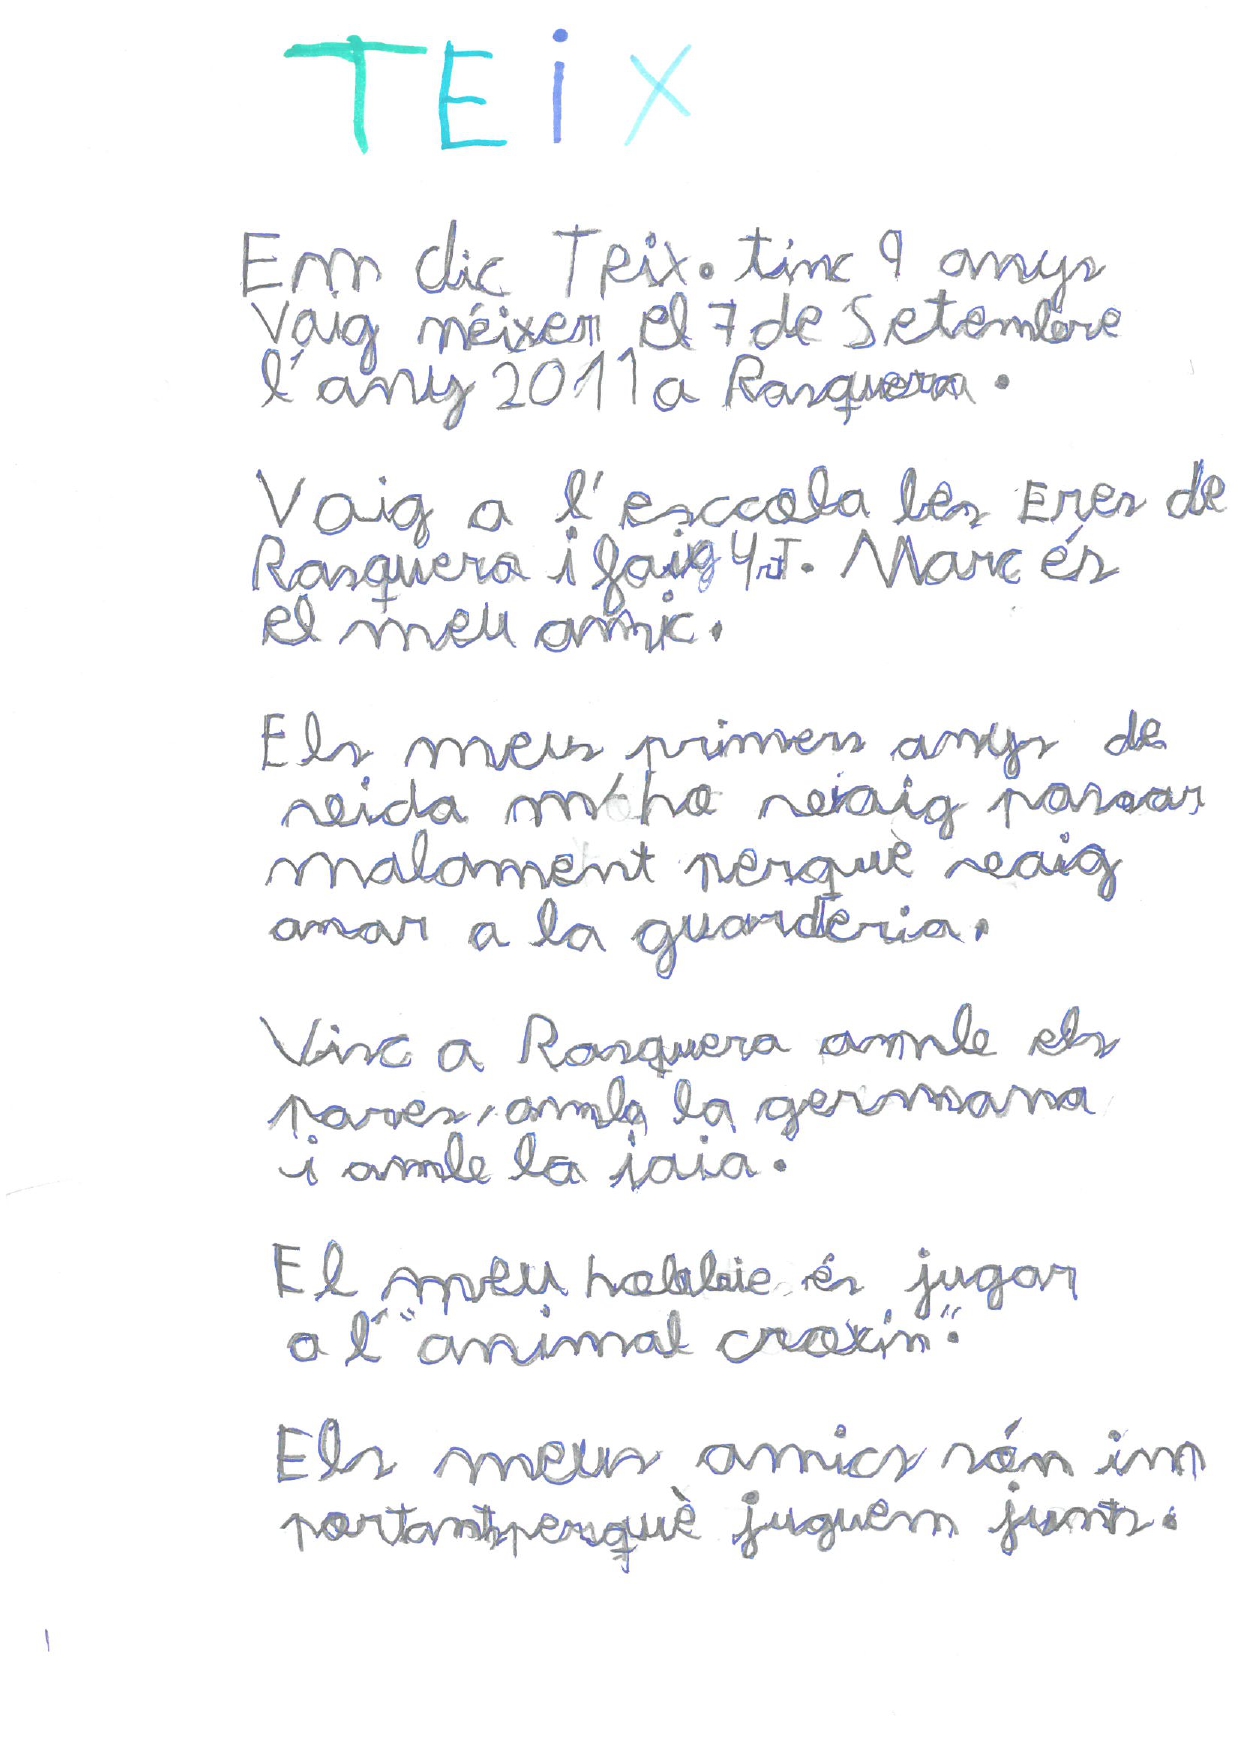 TEiX
Em dic Teix. tinc 9 anys
Vaig néixer el 7 de Setembre
l'any 2011 a Rasquera.
Vaig a l'escola les Eres de
Rasquera i faig 4rt. Marc és
el meu amic.
Els meus primers anys de
vida m'ho vaig passar
malament perquè vaig
anar a la guarderia.
Visc a Rasquera amb els
pares, amb la germana
i amb la iaia.
El meu hobbie és jugar
a l'"animal croxin".
Els meus amics són im
portants perquè juguem junts.